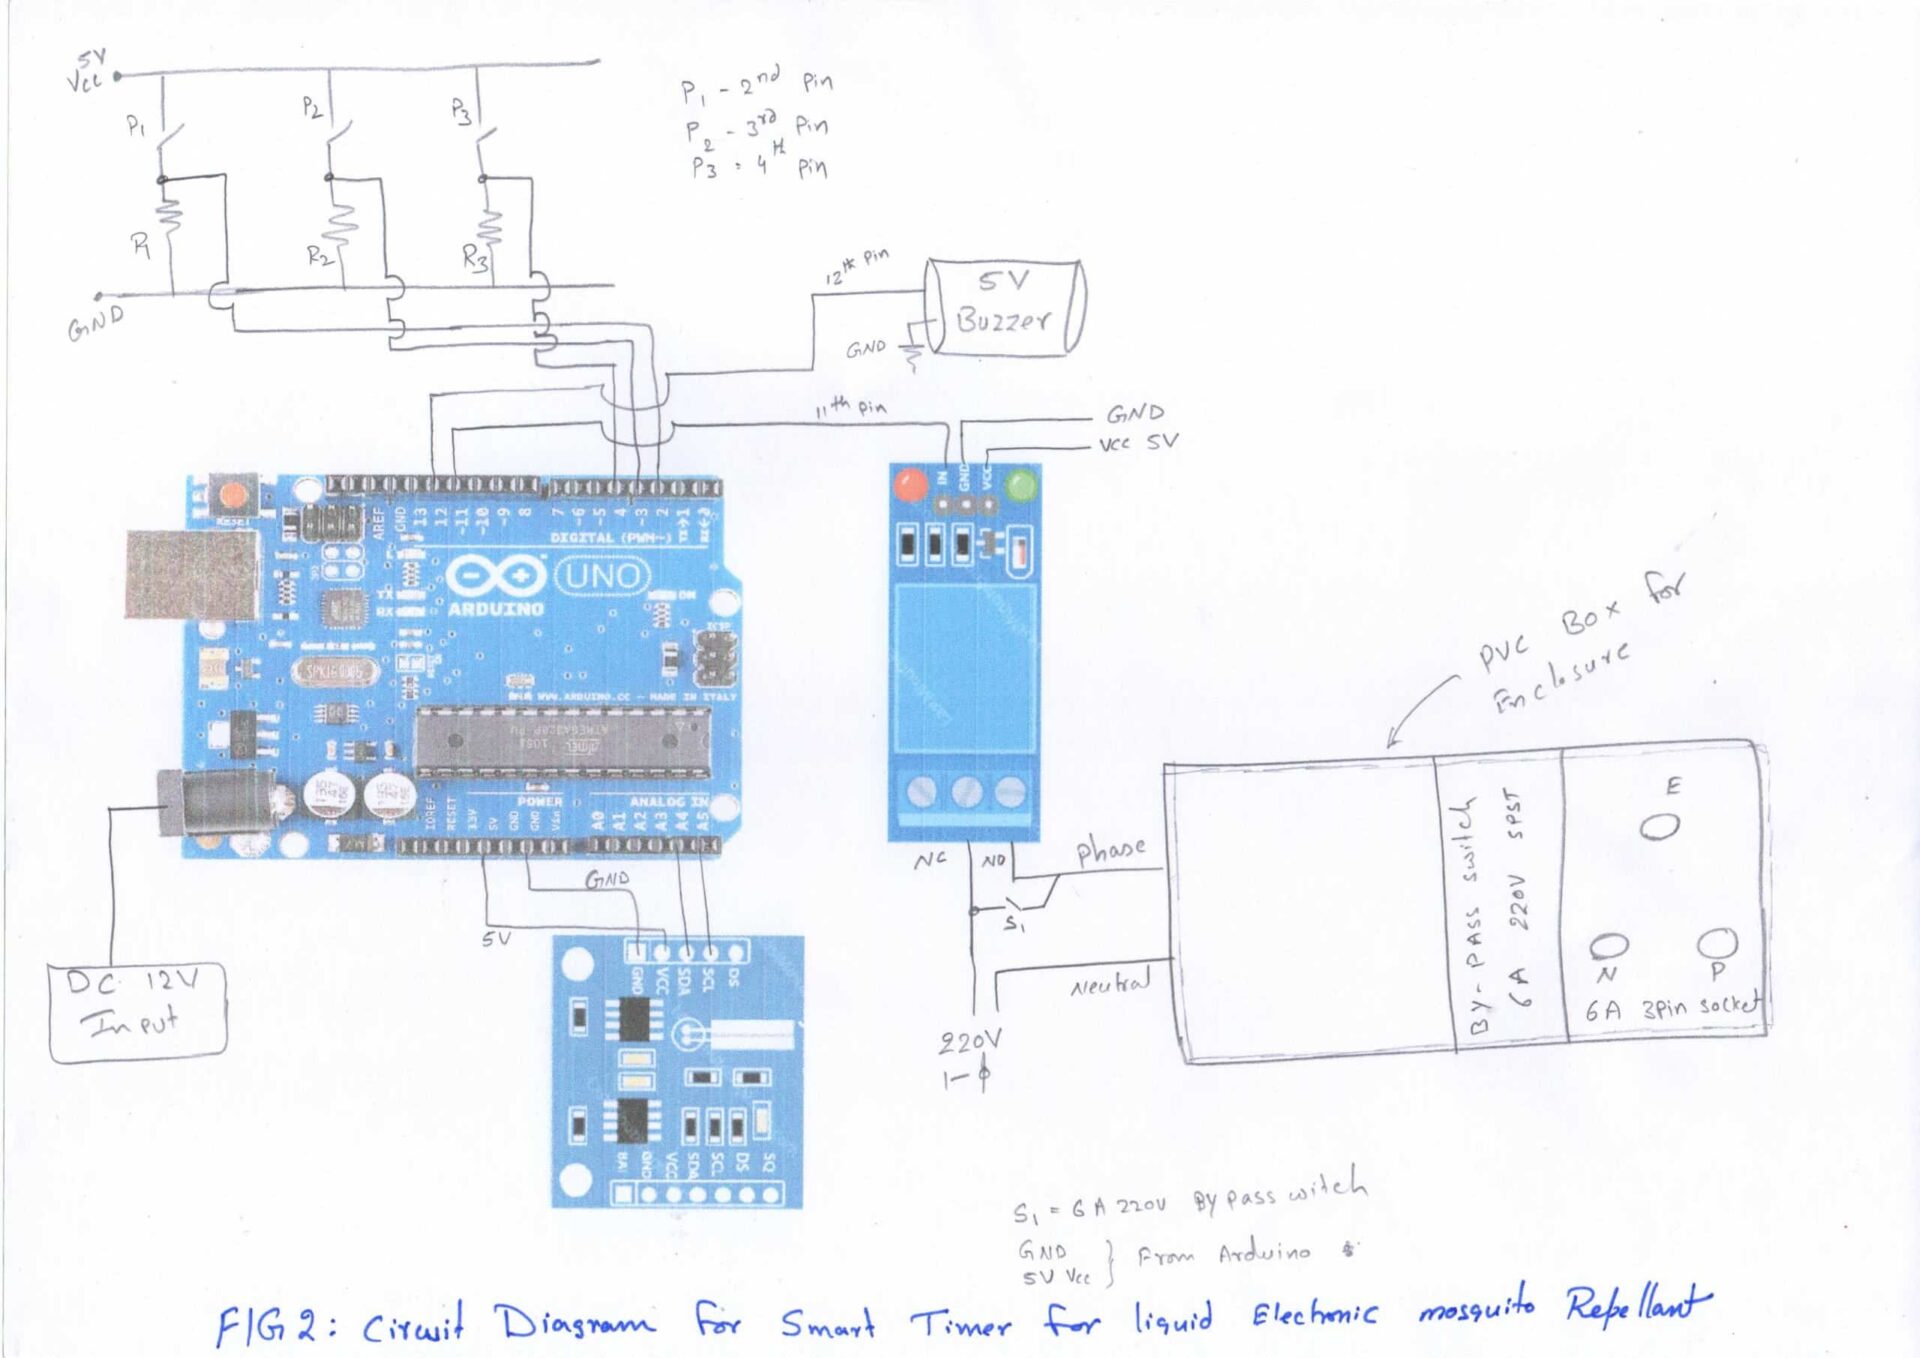 5V
Vcc
P1
P2
P3
R1
R2
R3
GND
P1 - 2nd Pin
P2 - 3rd Pin
P3 = 4th Pin
12th Pin
5V
Buzzer
GND
11th Pin
GND
VCC 5V
IN
GND
VCC
RESET
AREF
GND
13
12
~11
~10
~9
8
7
~6
~5
4
~3
2
TX→1
RX←0
DIGITAL (PWM~)
UNO
ARDUINO
TX
RX
ON
ICSP
WWW.ARDUINO.CC - MADE IN ITALY
ATMEGA328P-PU
POWER
ANALOG IN
IOREF
RESET
3.3V
5V
GND
GND
Vin
A0
A1
A2
A3
A4
A5
PVC Box for
Enclosure
NC
NO
Phase
S1
Neutral
220V
1-ϕ
BY-PASS switch
6A 220V SPST
E
N
P
6A 3Pin socket
DC 12V
Input
GND
5V
GND
VCC
SDA
SCL
DS
BAT
GND
VCC
SDA
SCL
DS
SQ
S1 = 6A 220V By pass witch
GND
5V Vcc
From Arduino
FIG 2: Circuit Diagram for Smart Timer for liquid Electronic mosquito Repellant